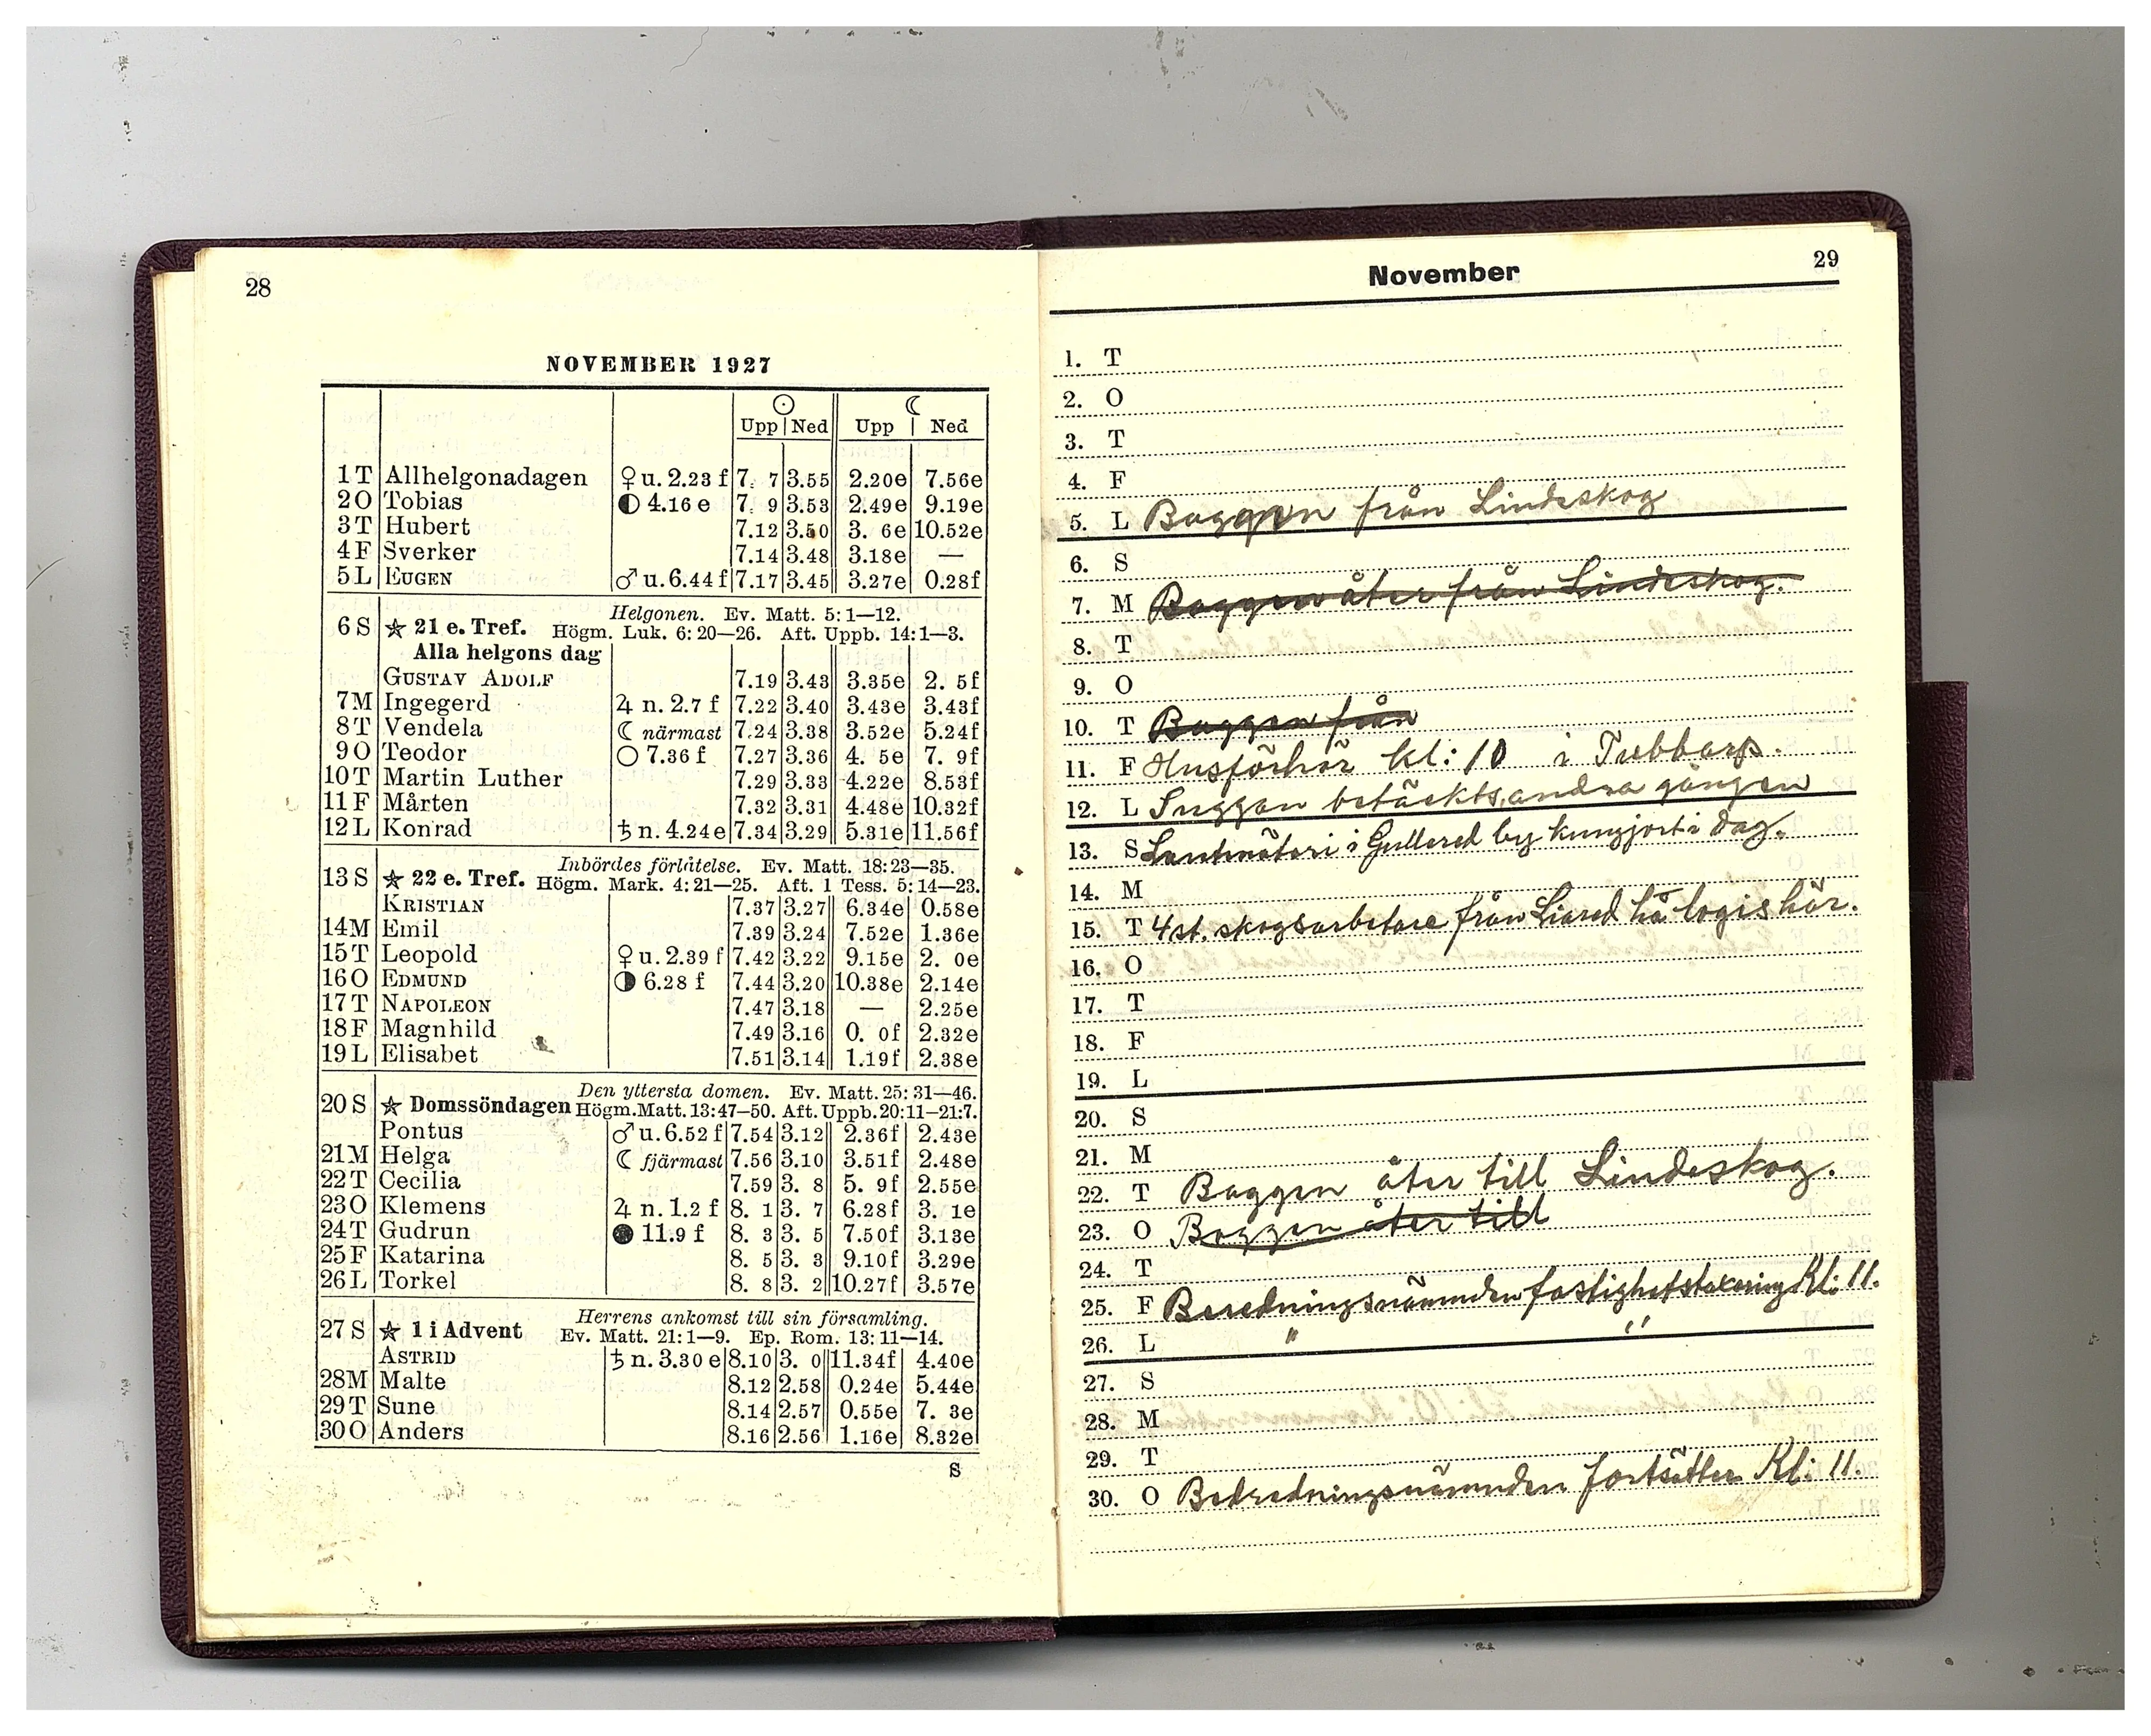 28
NOVEMBER 1927
☉ ☾
Upp Ned Upp Ned
1 T Allhelgonadagen ♀ u. 2.23 f 7. 7 3.55 2.20e 7.56e
2 O Tobias ◐ 4.16 e 7. 9 3.53 2.49e 9.19e
3 T Hubert 7.12 3.50 3. 6e 10.52e
4 F Sverker 7.14 3.48 3.18e —
5 L EUGEN ♂ u. 6.44 f 7.17 3.45 3.27e 0.28f
Helgonen. Ev. Matt. 5: 1—12.
6 S ☆ 21 e. Tref. Högm. Luk. 6: 20—26. Aft. Uppb. 14: 1—3.
Alla helgons dag
GUSTAV ADOLF 7.19 3.43 3.35e 2. 5f
7 M Ingegerd ♃ n. 2.7 f 7.22 3.40 3.43e 3.43f
8 T Vendela ☾ närmast 7.24 3.38 3.52e 5.24f
9 O Teodor ○ 7.36 f 7.27 3.36 4. 5e 7. 9f
10 T Martin Luther 7.29 3.33 4.22e 8.53f
11 F Mårten 7.32 3.31 4.48e 10.32f
12 L Konrad ♄ n. 4.24e 7.34 3.29 5.31e 11.56f
Inbördes förlåtelse. Ev. Matt. 18: 23—35.
13 S ☆ 22 e. Tref. Högm. Mark. 4: 21—25. Aft. 1 Tess. 5: 14—23.
KRISTIAN 7.37 3.27 6.34e 0.58e
14 M Emil 7.39 3.24 7.52e 1.36e
15 T Leopold ♀ u. 2.39 f 7.42 3.22 9.15e 2. 0e
16 O EDMUND ◑ 6.28 f 7.44 3.20 10.38e 2.14e
17 T NAPOLEON 7.47 3.18 — 2.25e
18 F Magnhild 7.49 3.16 0. 0f 2.32e
19 L Elisabet 7.51 3.14 1.19f 2.38e
Den yttersta domen. Ev. Matt. 25: 31—46.
20 S ☆ Domssöndagen Högm. Matt. 13: 47—50. Aft. Uppb. 20: 11—21: 7.
Pontus ♂ u. 6.52 f 7.54 3.12 2.36f 2.43e
21 M Helga ☾ fjärmast 7.56 3.10 3.51f 2.48e
22 T Cecilia 7.59 3. 8 5. 9f 2.55e
23 O Klemens ♃ n. 1.2 f 8. 1 3. 7 6.28f 3. 1e
24 T Gudrun ● 11.9 f 8. 3 3. 5 7.50f 3.13e
25 F Katarina 8. 5 3. 3 9.10f 3.29e
26 L Torkel 8. 8 3. 2 10.27f 3.57e
Herrens ankomst till sin församling.
27 S ☆ 1 i Advent Ev. Matt. 21: 1—9. Ep. Rom. 13: 11—14.
ASTRID ♄ n. 3.30 e 8.10 3. 0 11.34f 4.40e
28 M Malte 8.12 2.58 0.24e 5.44e
29 T Sune 8.14 2.57 0.55e 7. 3e
30 O Anders 8.16 2.56 1.16e 8.32e
S
November 29
1. T
2. O
3. T
4. F
5. L Baggen från Lindeskog
6. S
7. M Baggen åter från Lindeskog.
8. T
9. O
10. T Baggen från
11. F Husförhör kl: 10 i Tubbarp.
12. L Suggan betäckts, andra gången
13. S Lantmäteri i Gullered by kungjort i dag.
14. M
15. T 4 st. skogsarbetare från Liared ha logis här.
16. O
17. T
18. F
19. L
20. S
21. M
22. T Baggen åter till Lindeskog.
23. O Baggen åter till
24. T
25. F Beredningsnämnden fastighetstaxering Kl: 11.
26. L " "
27. S
28. M
29. T
30. O Bedredningsnämnden fortsätter Kl: 11.